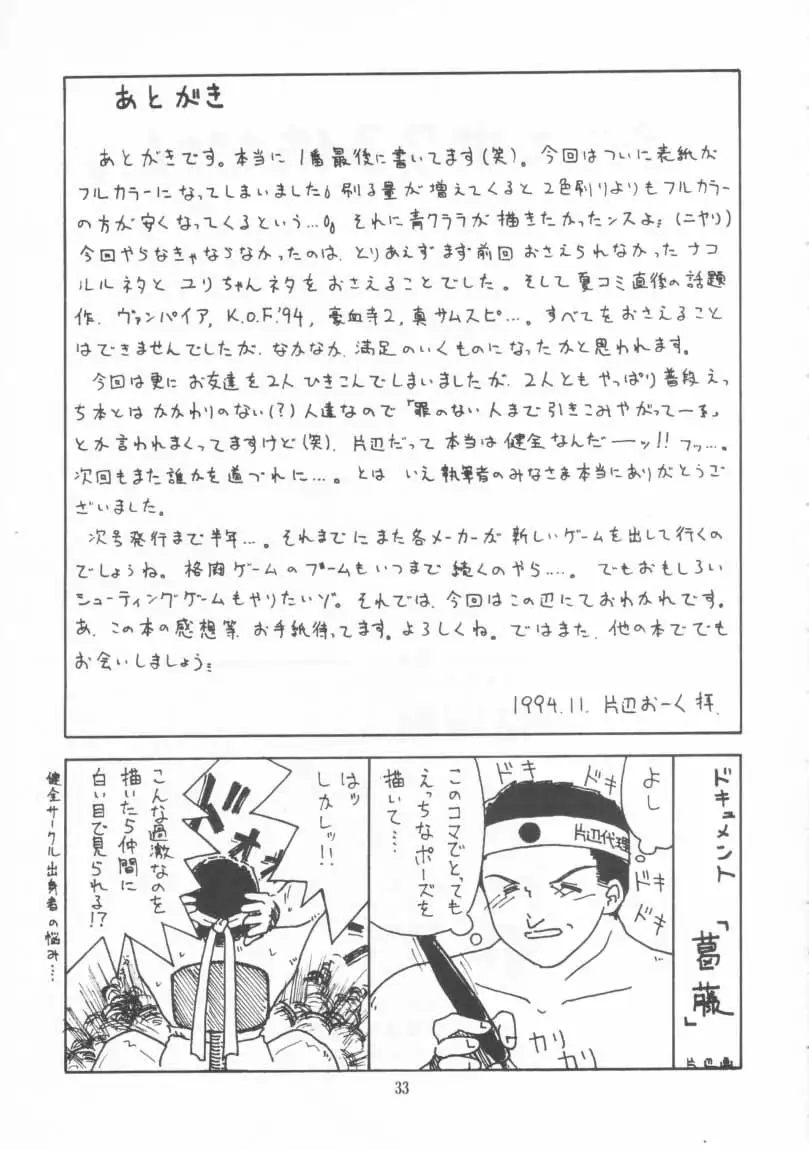 あとがき
あとがきです。本当に1番最後に書いてます(笑)。今回はついに表紙が
フルカラーになってしまいました。刷る量が増えてくると2色刷りよりもフルカラー
の方が安くなってくるという…。それに青クララが描きたかったンスよ。(ニヤリ)
今回やらなきゃならなかったのは、とりあえずまず前回おさえられなかったナコ
ルルネタとユリちゃんネタをおさえることでした。そして夏コミ直後の話題
作、ヴァンパイア, K.O.F.'94, 豪血寺2, 真サムスピ…。すべてをおさえること
はできませんでしたが、なかなか、満足のいくものになったかと思われます。
今回は更にお友達を2人ひきこんでしまいましたが、2人ともやっぱり普段えっ
ち本とはかかわりのない(?)人達なので「罪のない人まで引きこみやがってーっ」
とか言われまくってますけど(笑)、片辺だって本当は健全なんだーーッ!! フッ…。
次回もまた誰かを道づれに…。とはいえ執筆者のみなさま本当にありがとうご
ざいました。
次号発行まで半年…。それまでにまた各メーカーが新しいゲームを出して行くの
でしょうね。格闘ゲームのブームもいつまで続くのやら……。でもおもしろい
シューティングゲームもやりたいゾ。それでは、今回はこの辺にておわかれです。
あ、この本の感想等、お手紙待ってます。よろしくね。ではまた、他の本ででも
お会いしましょう。
1994.11. 片辺おーく 拝.
ドキュメント
「葛藤」
片辺画
よし
ドキ
ドキ
片辺代理
ドキ
ドキ
このコマでとっても
えっちなポーズを
描いて……
カリ
カリ
はッ
しかしッ!!
バオオ
こんな過激なのを
描いたら仲間に
白い目で見られる!?
健全サークル出身者の悩み…
33